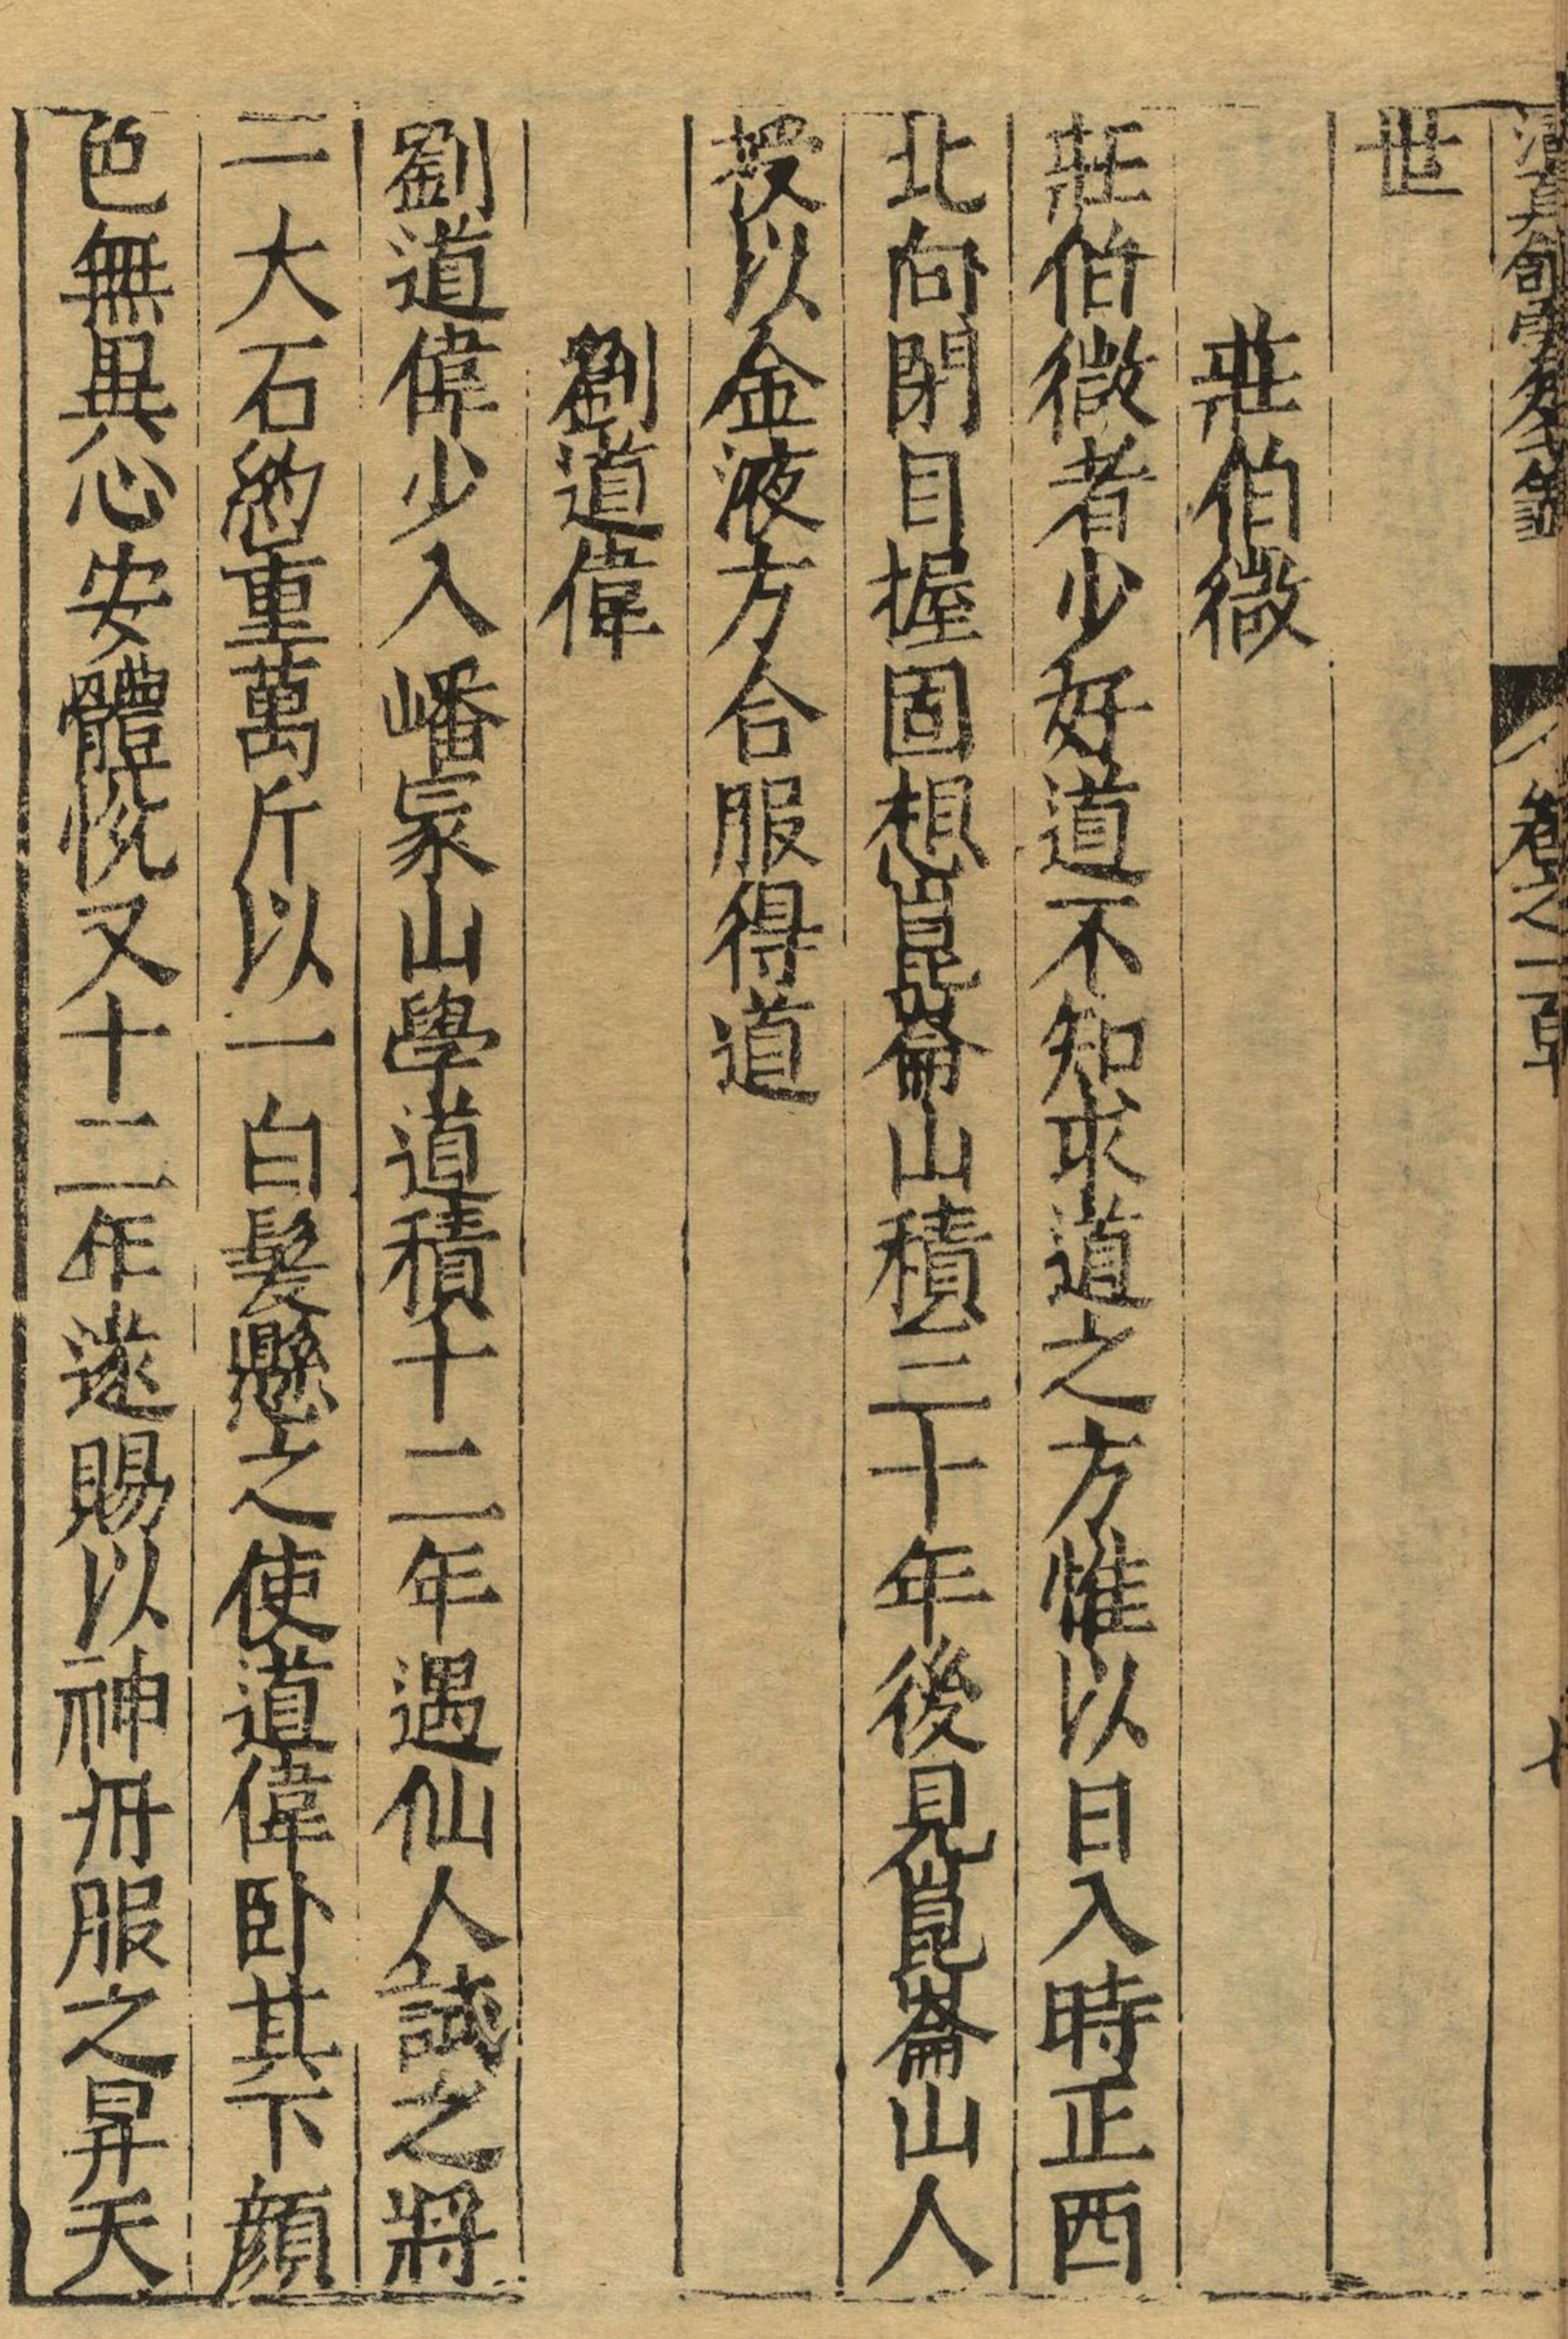 世
莊伯微
莊伯微者少好道不知求道之方惟以日入時正西
北向閉目握固想崑崙山積三十年後見崑崙山人
授以金液方合服得道
劉道偉
劉道偉少入嶓冢山學道積十二年遇仙人試之將
一大石約重萬斤以一白髮懸之使道偉卧其下顔
色無異心安體恱又十二年遂賜以神丹服之昇天